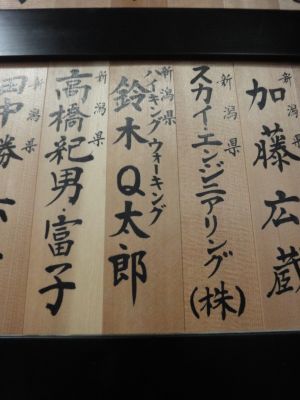 新潟県
加藤広蔵
新潟県
スカイ・エンジニアリング(株)
新潟県
ハイキングウォーキング
鈴木Q太郎
新潟県
高橋紀男・富子
新潟県
田中勝